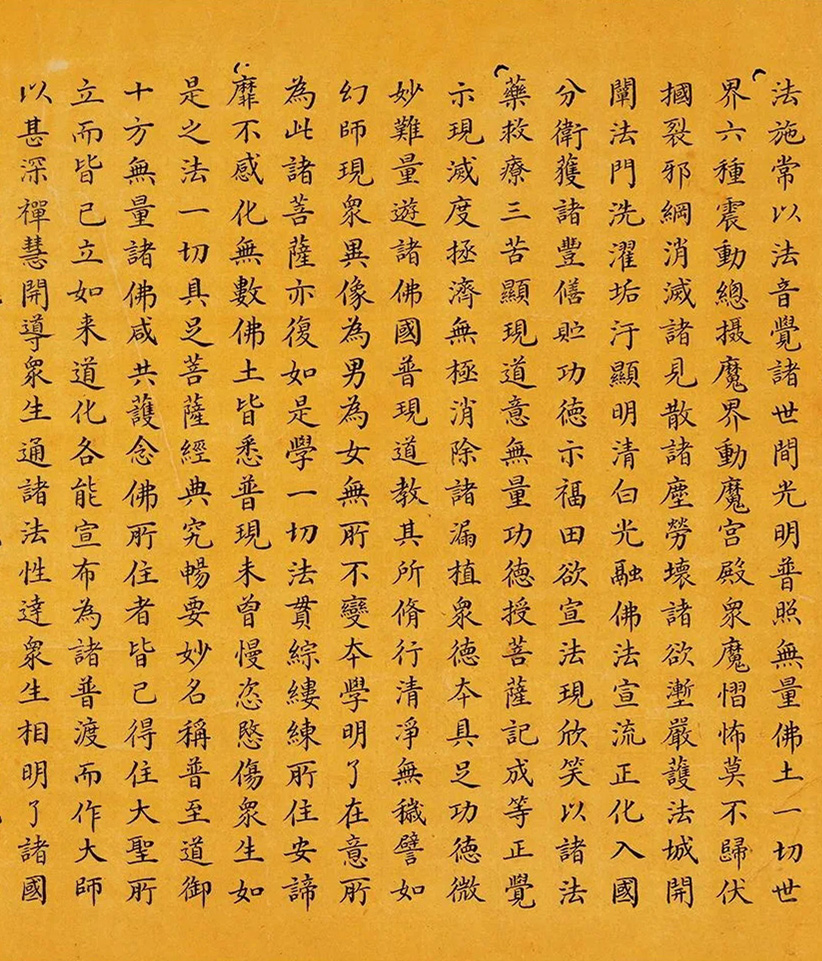 法施常以法音覺諸世間光明普照無量佛土一切世
界六種震動總摄魔界動魔宮殿眾魔慴怖莫不歸伏
摑裂邪綱消滅諸見散諸塵勞壞諸欲塹嚴護法城開
闡法門洗濯垢汙顯明清白光融佛法宣流正化入國
分衛獲諸豐饍貯功德示福田欲宣法現欣笑以諸法
藥救療三苦顯現道意無量功德授菩薩記成等正覺
示現滅度拯濟無極消除諸漏植眾德夲具足功德微
妙難量遊諸佛國普現道教其所脩行清淨無穢譬如
幻師現眾異像為男為女無所不變夲學明了在意所
為此諸菩薩亦復如是學一切法貫綜縷練所住安諦
靡不感化無數佛土皆悉普現未曾慢恣愍傷眾生如
是之法一切具足菩薩經典究暢要妙名稱普至道御
十方無量諸佛咸共護念佛所住者皆已得住大聖所
立而皆已立如来道化各能宣布為諸普渡而作大師
以甚深禪慧開導眾生通諸法性達眾生相明了諸國